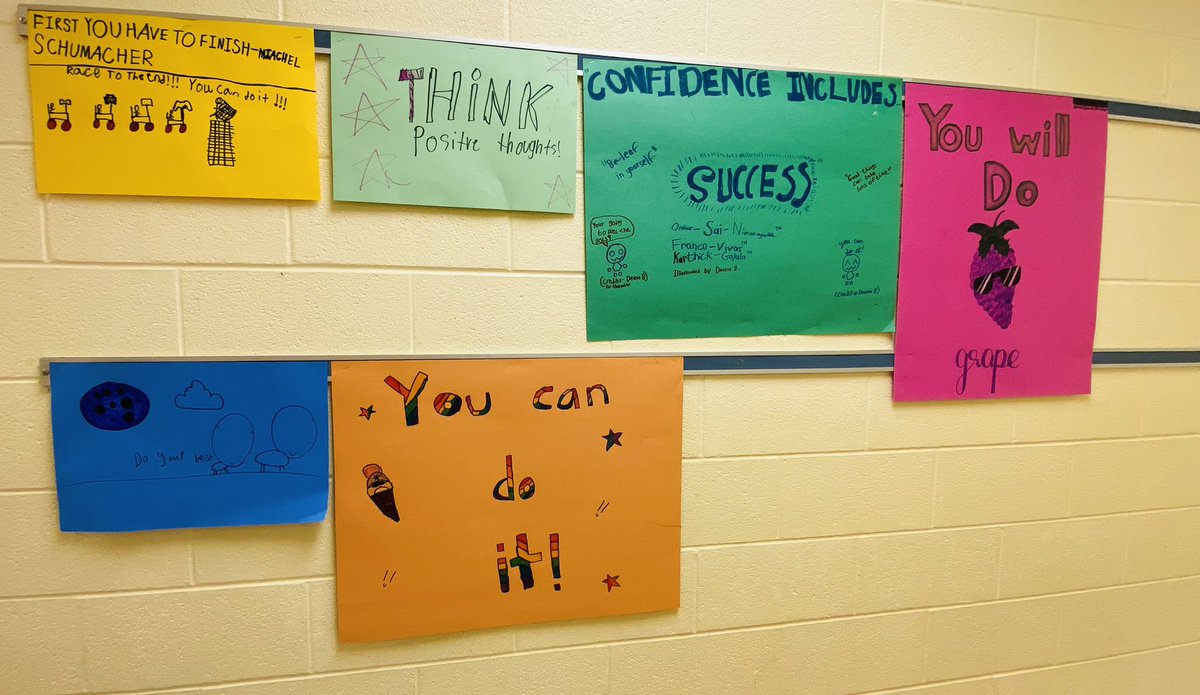 FIRST YOU HAVE TO FINISH-MIACHEL
SCHUMACHER
RACE TO THE END!!! YOU CAN do it!!!
THINK
Positive thoughts!
CONFIDENCE INCLUDES
"Be-leaf
in yourself"
"Good things
can take
lots of time"
SUCCESS
Your going
to pass the
(credits-Deena B)
you can
do it!
(credits-Deena B)
Sai-
Franco-Vivas™
Karthick-Gajula™
Illustrated by Deena B.
You will
Do
grape
Do your best
You can
do
it!
!!
!!